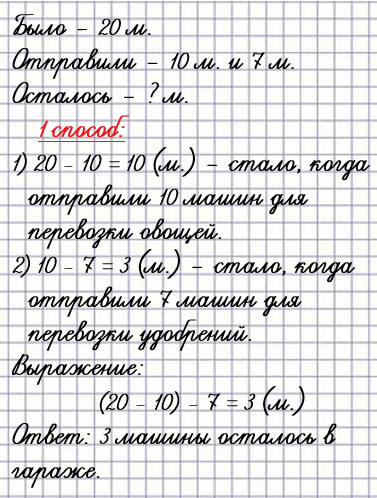 Было – 20 м.
Отправили – 10 м. и 7 м.
Осталось – ? м.
1 способ:
1) 20 – 10 = 10 (м.) – стало, когда
отправили 10 машин для
перевозки овощей.
2) 10 – 7 = 3 (м.) – стало, когда
отправили 7 машин для
перевозки удобрений.
Выражение:
(20 – 10) – 7 = 3 (м.)
Ответ: 3 машины осталось в
гараже.